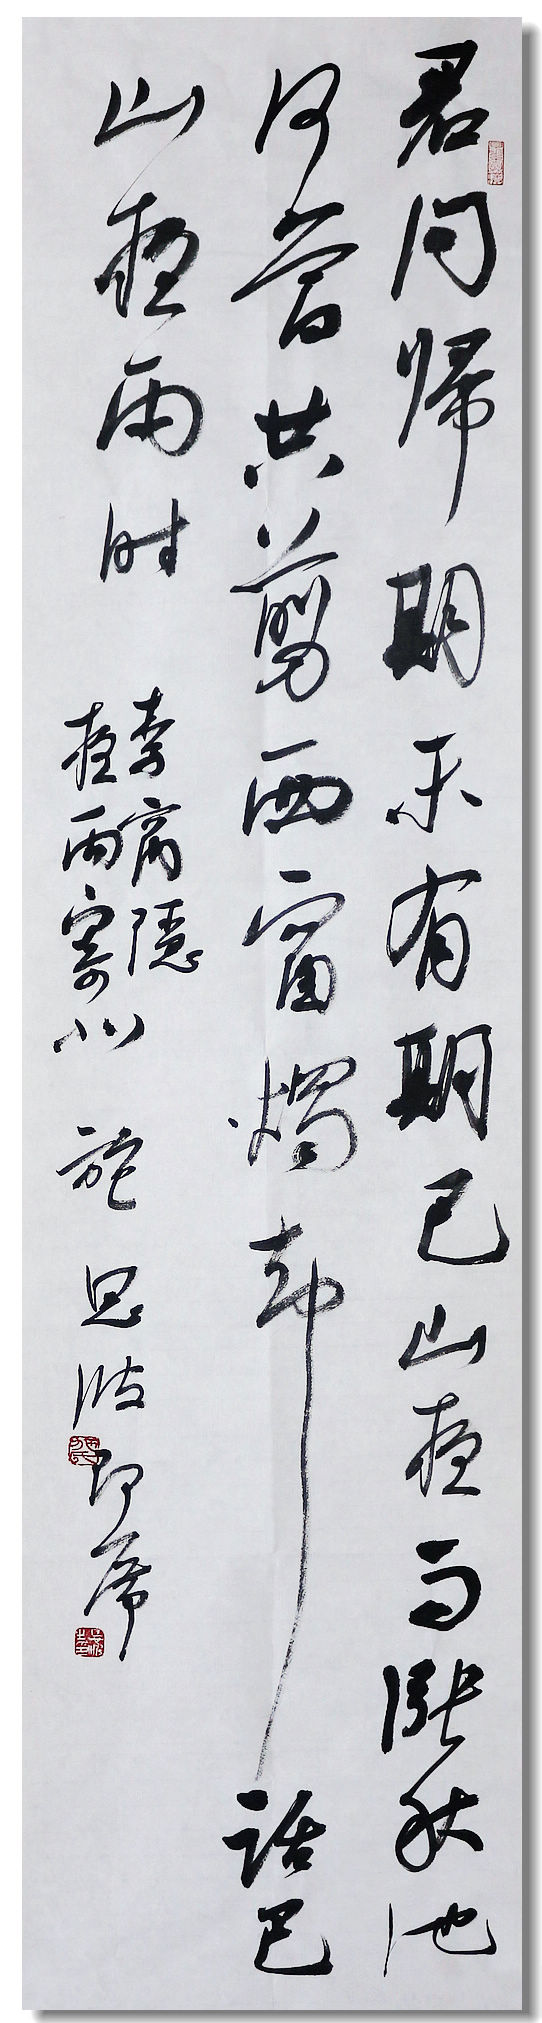 君问归期未有期巴山夜雨涨秋池
何当共剪西窗烛却话巴
山夜雨时
李商隐
夜雨寄北 施思波即席